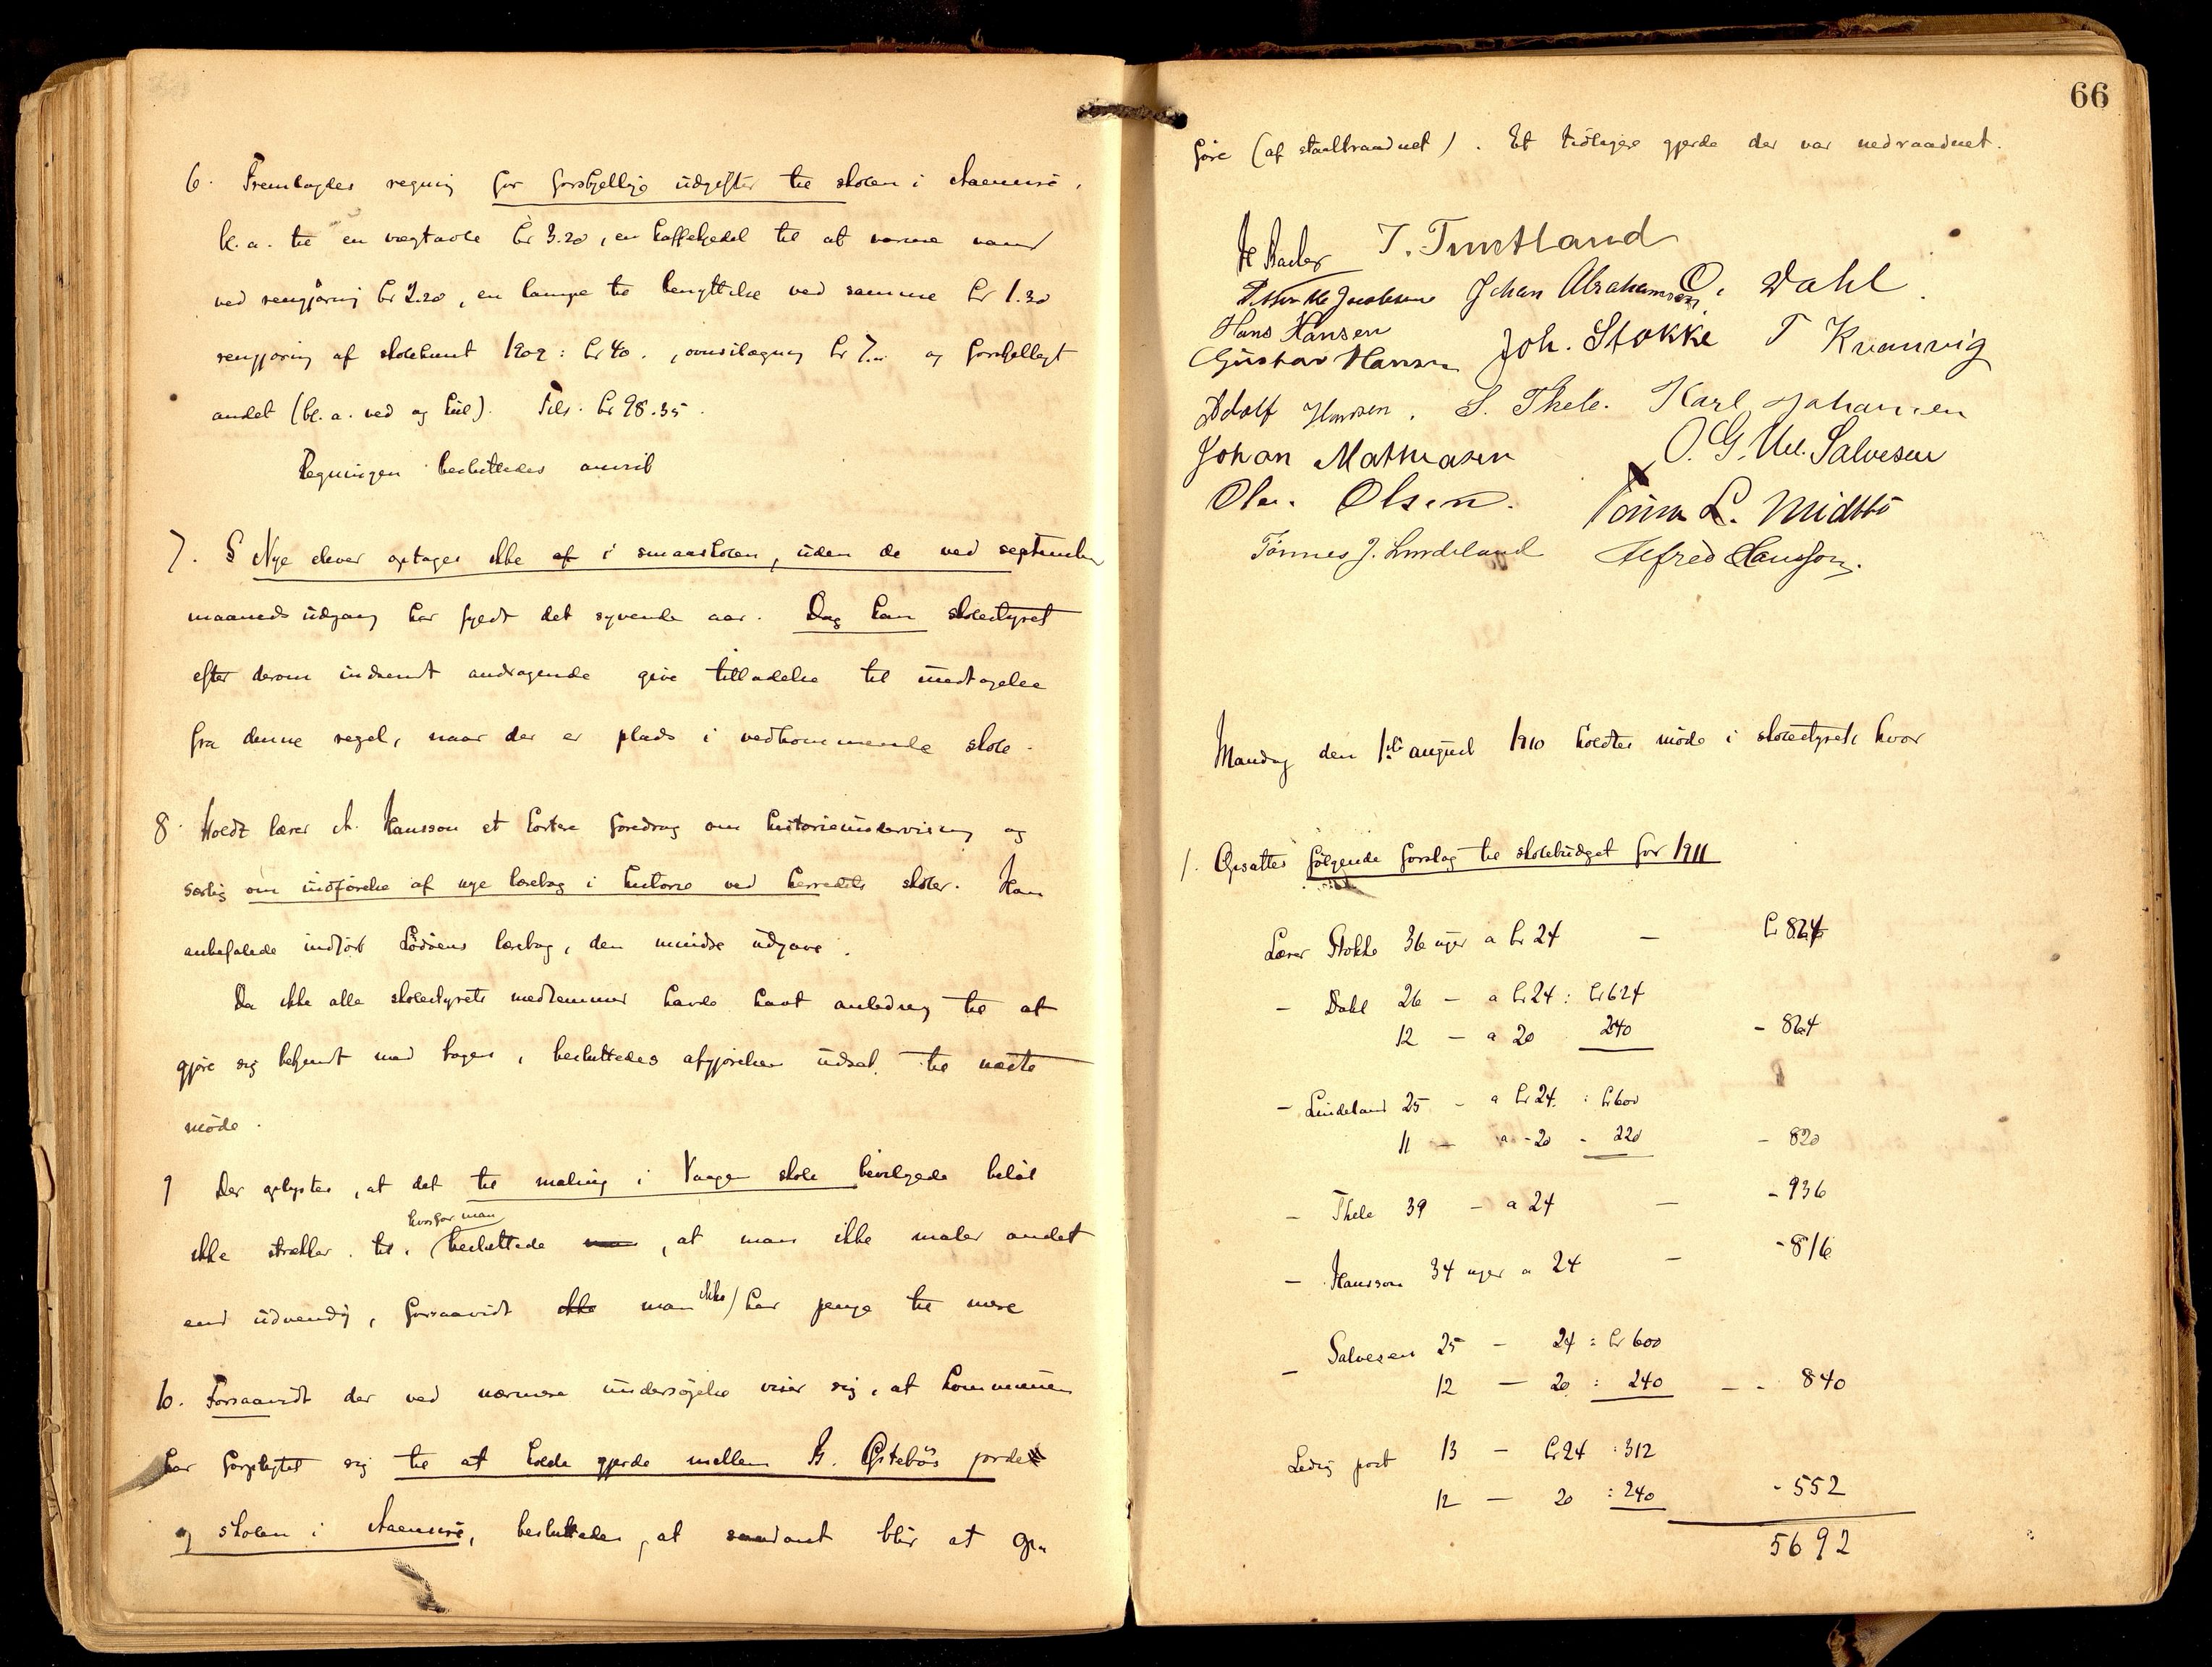 6. Fremlagdes regning for forskjellige udgifter til skolen i
bl.a. til en vægtavle kr 3.20, en kaffekjedel til at varme vand
ved rengjøring kr 2.20, en lampe til benyttelse ved samme kr 1.30
rengjøring af skolehuset 1909: kr 40. , kr 7.00 og forskjelligt
andet (bl.a. ved og kul). Tils. kr 98.35.
Regningen besluttedes anvist
7. § Nye elever optages ikke af i smaaskolen, uden de ved september
maaneds udgang har fyldt det syvende aar. Dog kan skolestyret
efter derom indsendt andragende give tilladelse til undtagelse
fra denne regel, naar der er plads i vedkommende skole.
8. Holdt lærer A. Hansson et kortere foredrag om historieundervisning og
særlig om indførelse af nye lærebog i historie ved herredets skoler. Han
anbefalede indført lærebog, den mindre udgave.
Da ikke alle skolestyrets medlemmer havde havt anledning til at
gjøre sig bekjent med bogen, besluttedes afgjørelsen udsat til næste
møde.
9 Der oplystes, at det til maling i Vaage skole bevilgede beløb
hvorfor man
ikke strækker til, besluttede man, at man ikke maler andet
end udvendig, forsaavidt ikke man ikke har penge til mere
10. Forsaavidt der ved nærmere undersøgelse viser sig, at kommunen
har forpligtet sig til at holde gjerde mellem B. Østebøs jorde
og skolen i , besluttedes, at saadant blir at op-
66
føre (af staaltraadnet). Et tidligere gjerde der var nedraadnet.
T. Tuntland
Jacobsen Johan Abrahamsen O. Dahl.
Hans Hansen
Gustav Hansen Joh. Stokke T Kvanvig
Adolf Hansen. S. Thele. Karl Johansen
Johan Mathiasen O. G. Ue. Salvesen
Ole Olsen. Tønnes L. Midtbø
Tønnes J. Lindeland Alfred Hansson.
Mandag den 1ste august 1910 holdtes møde i skolestyret, hvor
1. Opsattes følgende forslag til skolebudget for 1911
Lærer Stokke 36 uger a kr 24 — kr 864
- Dahl 26 — a kr 24 : kr 624
12 — a 20 240 - 864
- Lindeland 25 - a kr 24. : kr 600
11 — a - 20 - 220 - 820
- Thele 39 - a 24 — - 936
- Hansson 34 uger a 24 — - 816
- Salvesen 25 — 24 : kr 600
12 — 20 : 240 - - 840
Ledig post 13 — kr 24 : 312
12 — 20 : 240 - 552
5692